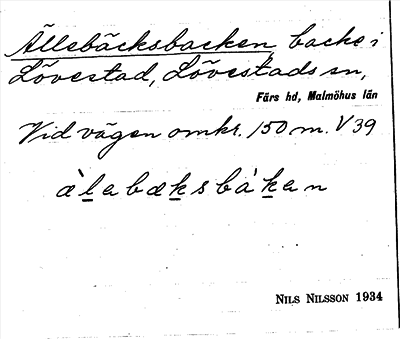 Ällebäcksbacken, backe i
Lövestad, Lövestads sn,
Färs hd, Malmöhus län
Vid vägen omkr. 150 m. V 39
àlabæksbàkan
NILS NILSSON 1934